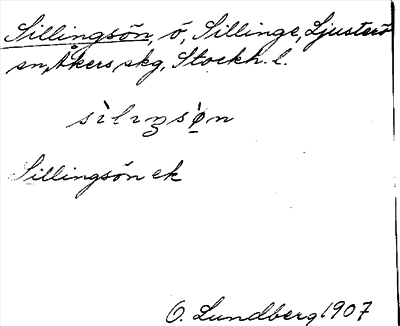 Sillingsön, ö, Sillinge, Ljusterö
sn, Åkers skg, Stockh. l.
Sillingsön ek
O. Lundberg 1907